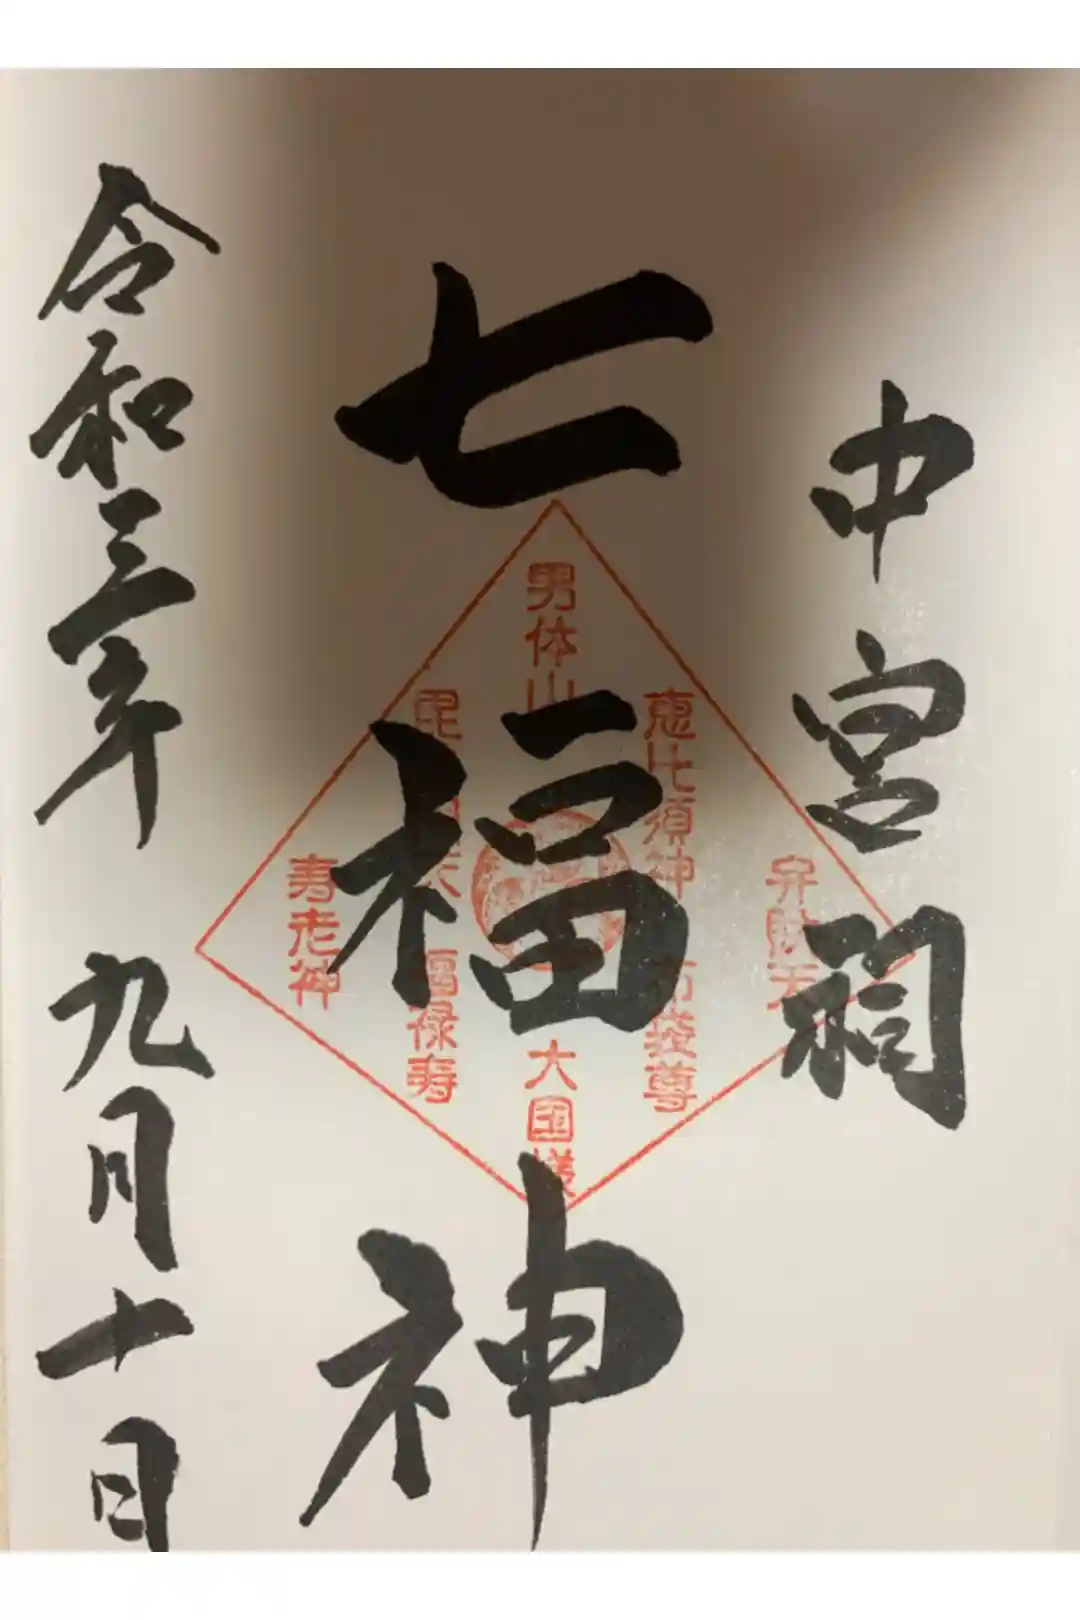 中宮祠
七福神
令和三年 九月十日
男体山
弁財天
恵比須神 布袋尊
大国様
福禄寿
寿老神